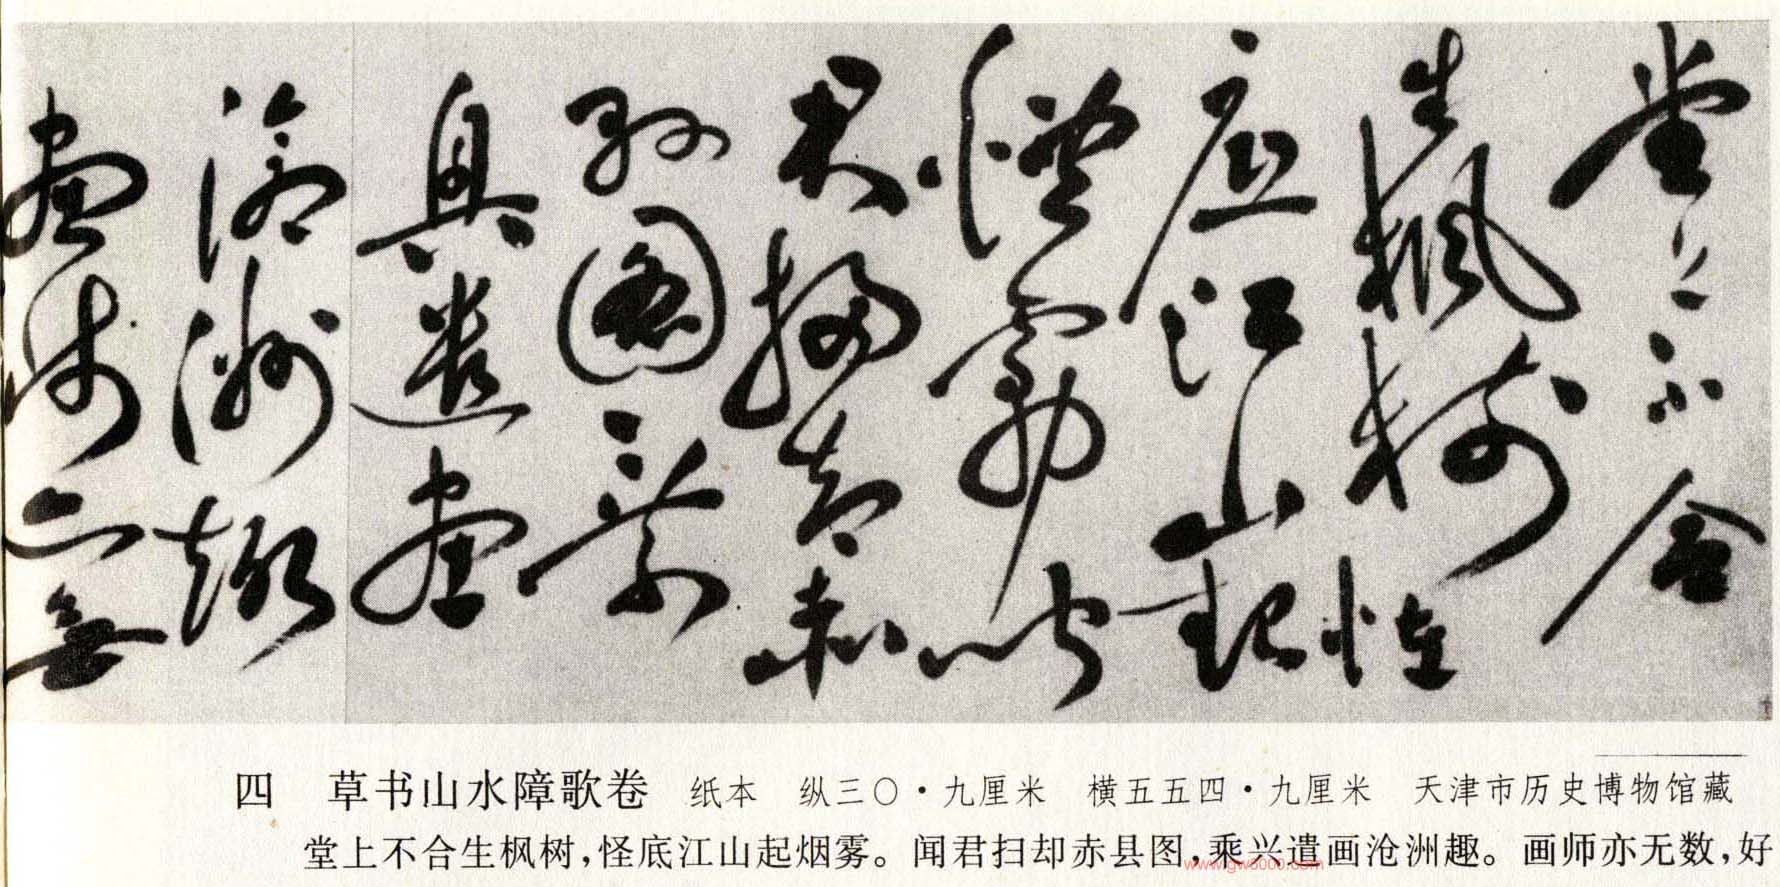 堂上不合
生楓樹怪
底江山起
煙霧聞
君掃却赤
縣圖乘
興遣畫
滄洲趣
畫師亦無
四 草书山水障歌卷 纸本 纵三〇·九厘米 横五五四·九厘米 天津市历史博物馆藏
堂上不合生枫树,怪底江山起烟雾。闻君扫却赤县图,乘兴遣画沧洲趣。画师亦无数,好
www.gw5000.com